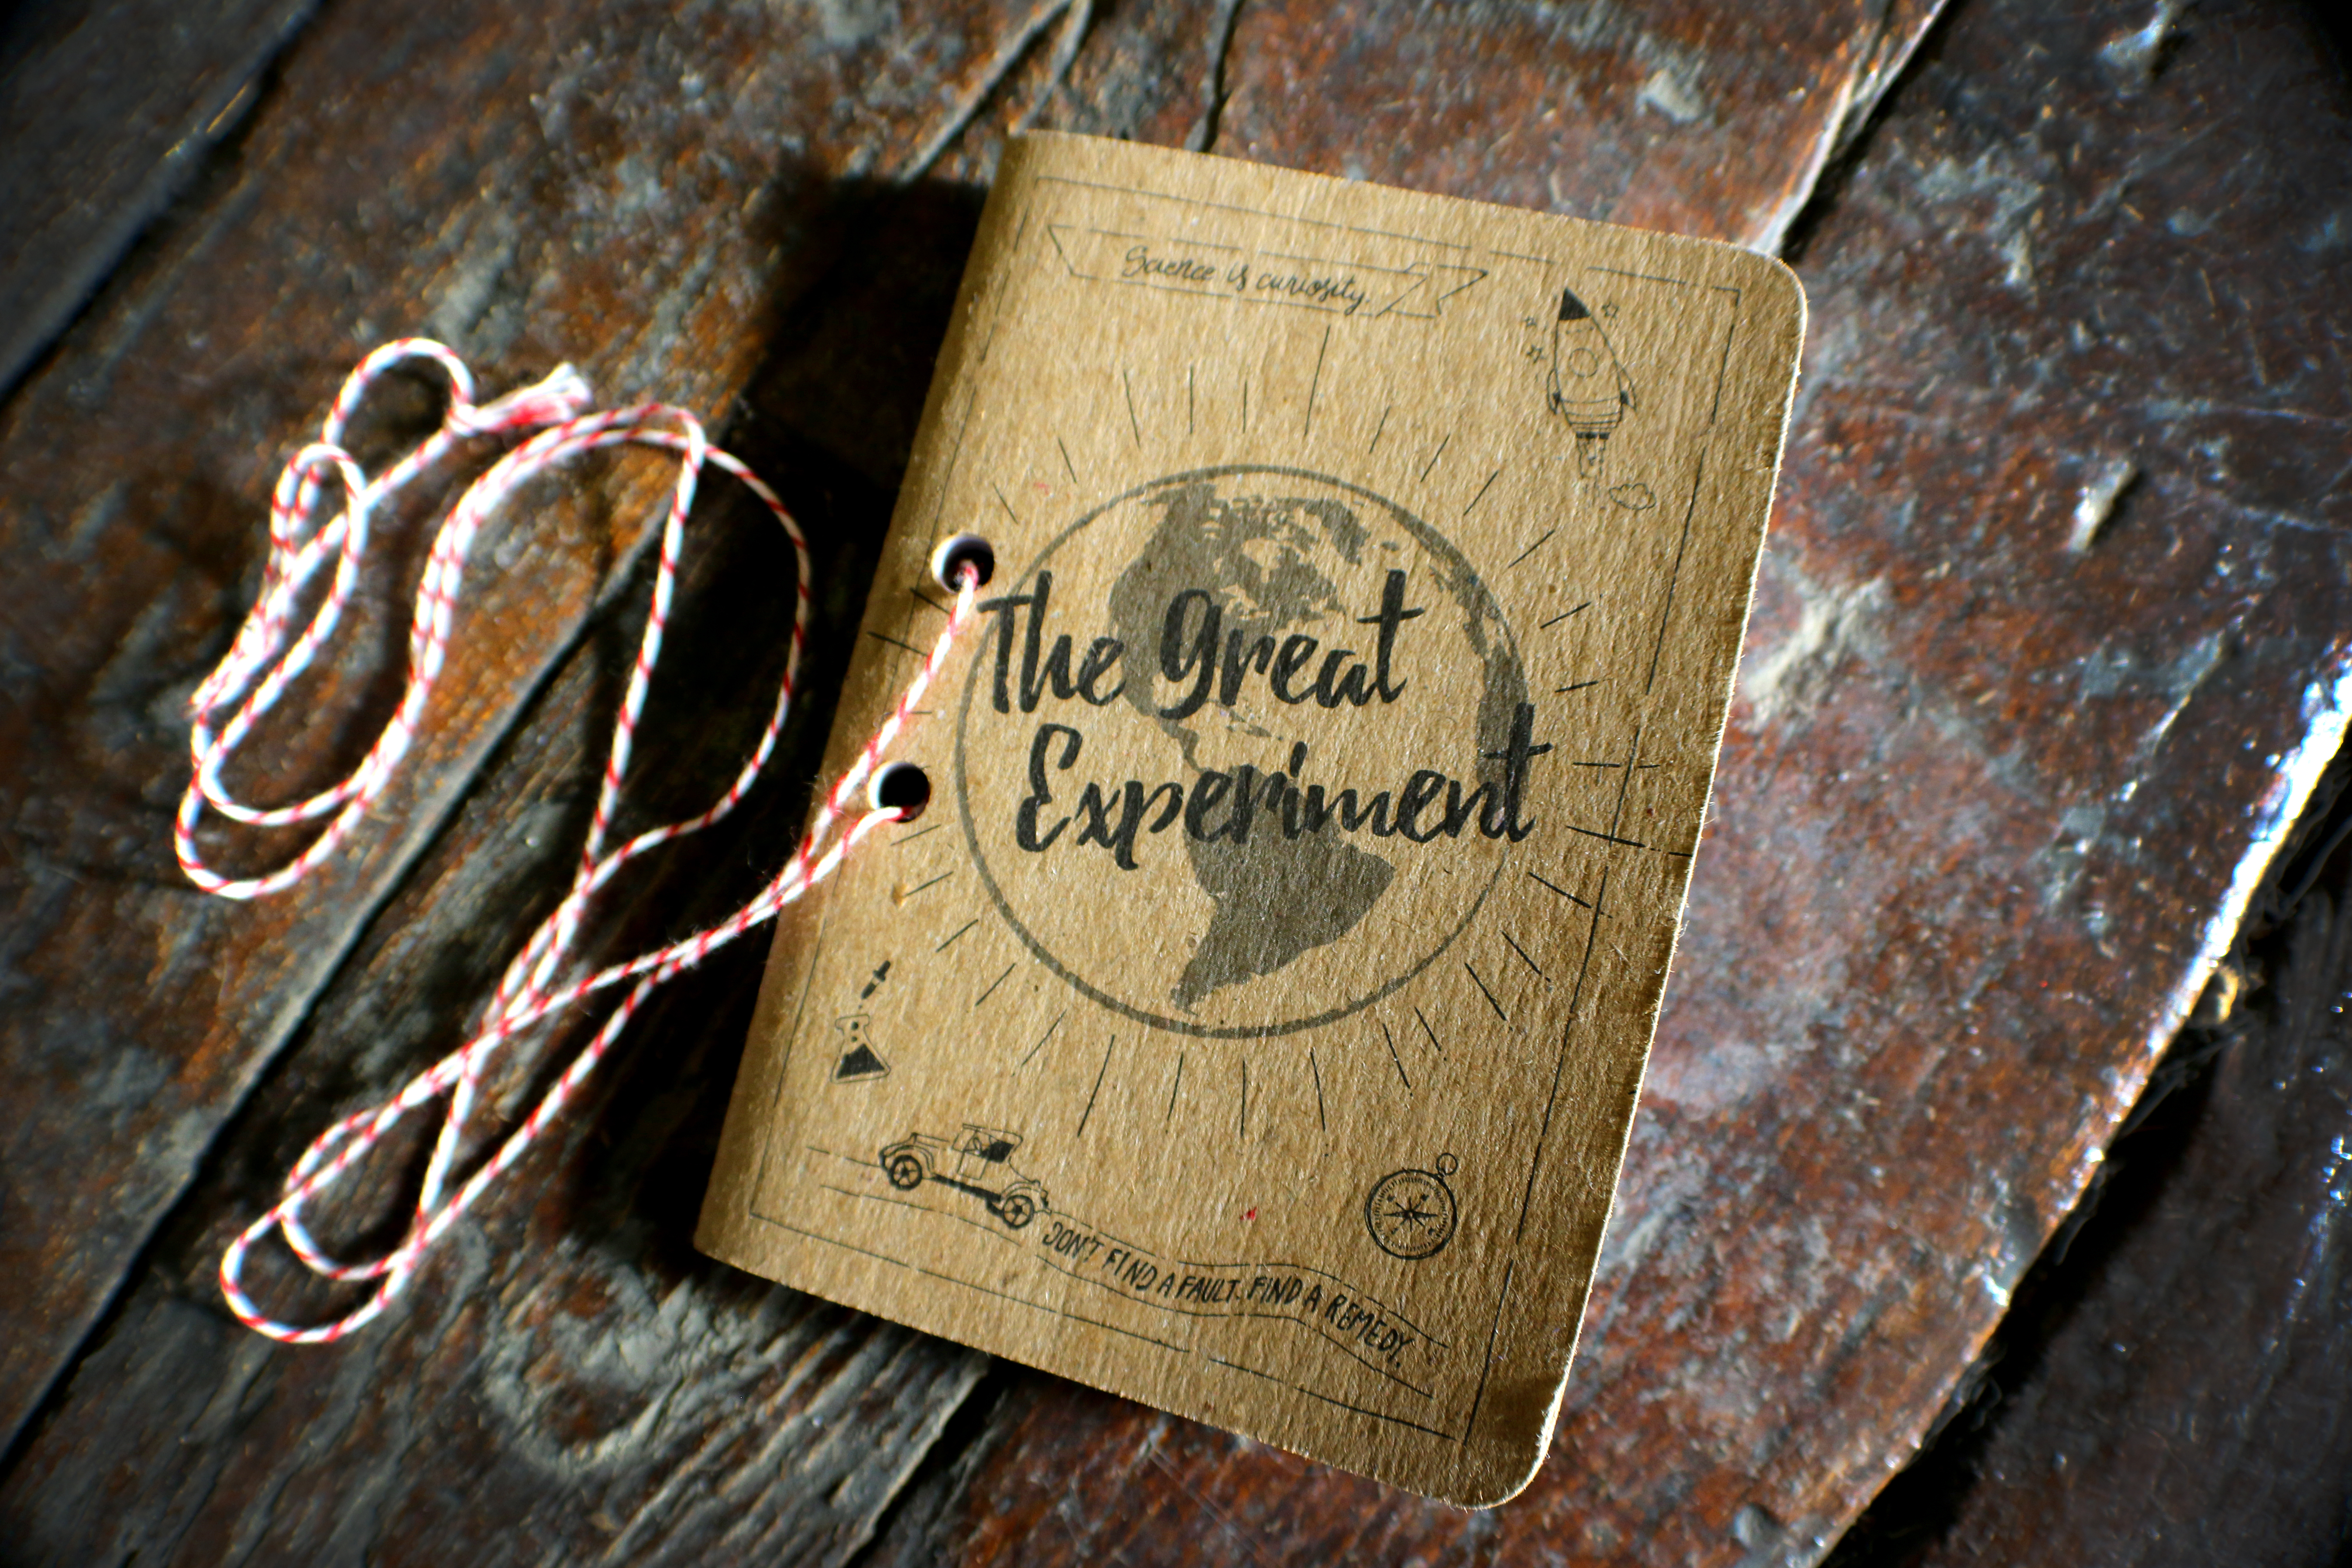 Science is curiosity.
The Great
Experiment
DON'T FIND A FAULT. FIND A REMEDY.